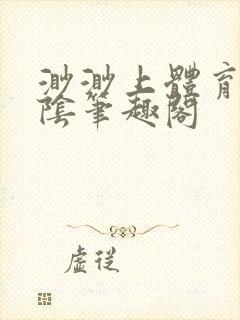 渺渺上體育
陰筆趣閣
虛從